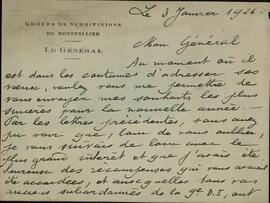 Le 3 Janvier 1926
GROUPE DE SUBDIVISIONS
DE MONTPELLIER
LE GÉNÉRAL
Mon Général
Au moment où il
est dans les coutumes d'adresser ses
vœux, voulez vous me permettre de
vous envoyer mes souhaits les plus
sincères pour la nouvelle année.
Par les lettres précédentes, vous avez
pu voir que, loin de vous oublier,
je vous suivais de loin avec le
plus grand intérêt et que j'avais été
heureux des récompenses qui vous avaient
été accordées, et auxquelles tous vos
anciens subordonnés de la 9e D.I, ont